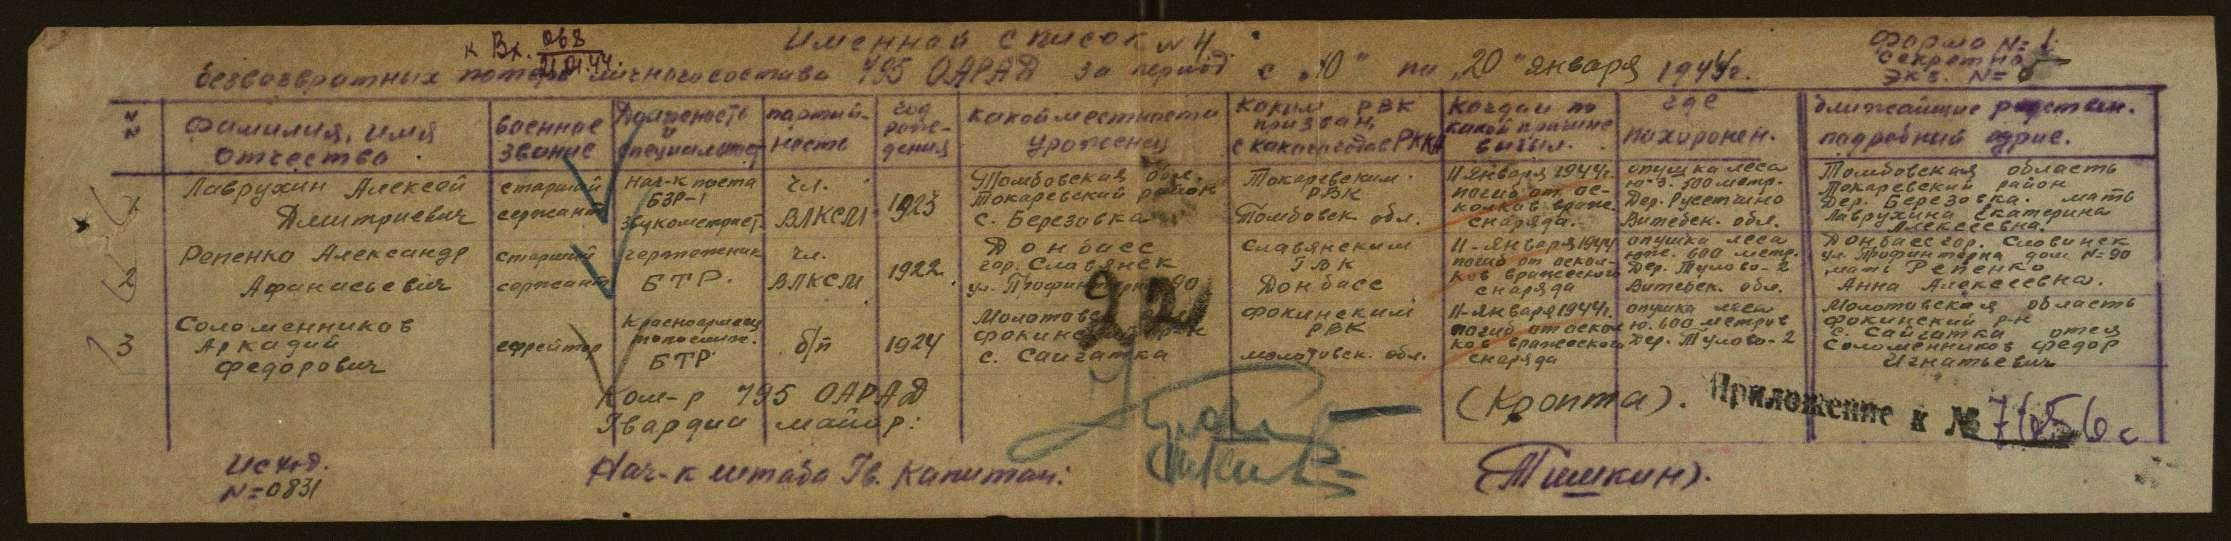 к Вх. 068
21.01.44.
Именной список № 4
безвозвратных потерь личного состава 795 ОАРАД за период с "10" по "20" января 1944г.
Форма № 1.
Секретно
Экз. №
№№
Фамилия, имя отчество
военное звание
Должность и специальность
партийность
год рождения
какой местности уроженец
каким РВК призван, с какого РККА
когда и по какой причине выбыл.
где похоронен.
ближайшие родствен. подробный адрес.
1
Лаврухин Алексей
Дмитриевич
старший
сержант
Нач-к поста
БЗР-1
звукометрист.
чл.
ВЛКСМ
1923
Томбовская обл.
Токаревский район
с. Березовка
Токаревским
РВК
Томбовск обл.
11 января 1944г.
погиб от ос-
колков враже.
снаряда.
опушка леса
ю-з. 500 метр.
Дер.
Витебск. обл.
Томбовская область
Токаревский район
Дер. Березовка. мать
Лаврухина Екатерина
Алексеевна.
2
Репенко Александр
Афанасьевич
старший
сержант
чертежник
БТР.
чл.
ВЛКСМ
1922
Донбасс
гор. Славянск
ул. Профинтерна 90
Славянским
ГВК
Донбасс
11-января 1944
погиб от оскол-
ков вражеского
снаряда
опушка леса
южн. 600 метр.
Дер. Тулово-2
Витебск. обл.
Донбасс гор. Словинск
ул. Профинтерна дом №90
мать Репенко
Анна Алексеевна.
3
Соломенников
Аркадий
Федорович
ефрейтор
Красноармеец
БТР
б/п
1924
Молотовская
фокинский р-н
с. Сайгатка
фокинским
РВК
молотовск. обл.
11-января 1944г.
погиб от оскол
ков вражеского
снаряда
опушка леса
ю. 600 метров
Дер. Тулово-2
Молотовская область
фокинский р-н
с. Сайгатка отец
Соломенников Федор
Игнатьевич
Ком-р 795 ОАРАД
Гвардии майор:
(Кропта).
Приложение к № 7656 с
Исход.
№=0831
Нач-к штаба Гв. Капитан:
(Тишкин).